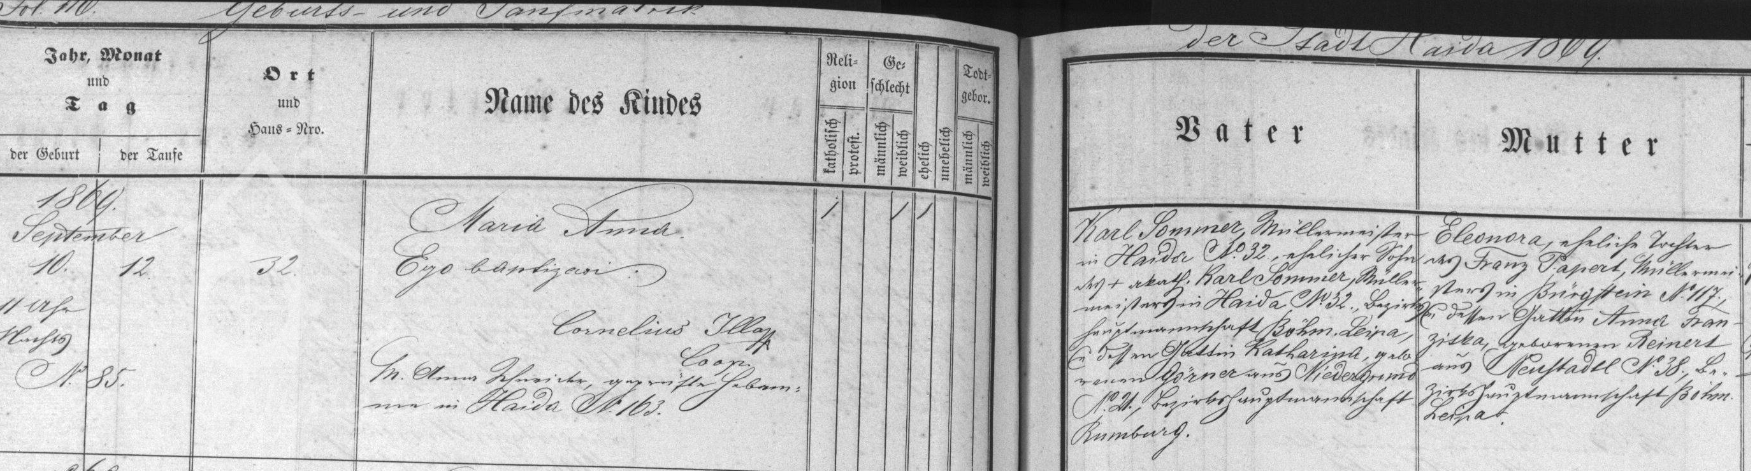 Fol. 110. Geburts- und Taufmatrik
der Stadt Haida 1869.
Jahr, Monat
und
Tag
der Geburt
der Taufe
Ort
und
Haus-Nro.
Name des Kindes
Reli-
gion
katholisch
protest.
Ge-
schlecht
männlich
weiblich
ehelich
unehelich
Todt-
gebor.
männlich
weiblich
Vater
Mutter
1869.
September
10. 12
11 Uhr
Nachts
No. 85.
32.
Maria Anna.
Ego baptizavi.
Cornelius
Coop.
M. Anna Schneider, geprüfte Hebam-
me in Haida No. 163.
1 1 1
Karl Sommer, Müllermeister
in Haida No. 32., ehelicher Sohn
des + akath. Karl Sommer, Müller-
meisters in Haida No. 32., Bezirks-
hauptmannschaft Böhm. Leipa,
u dessen Gattin Katharina, gebo-
renen Görner aus Niedergrund
No. 21., Bezirkshauptmannschaft
Rumburg.
Eleonora, eheliche Tochter
des Franz Papert, Müllermei-
sters in Bürgstein No. 117.,
u dessen Gattin Anna Fran-
ziska, geborenen Reinert
aus Neustadtl No. 38., Be-
zirkshauptmannschaft Böhm.
Leipa.